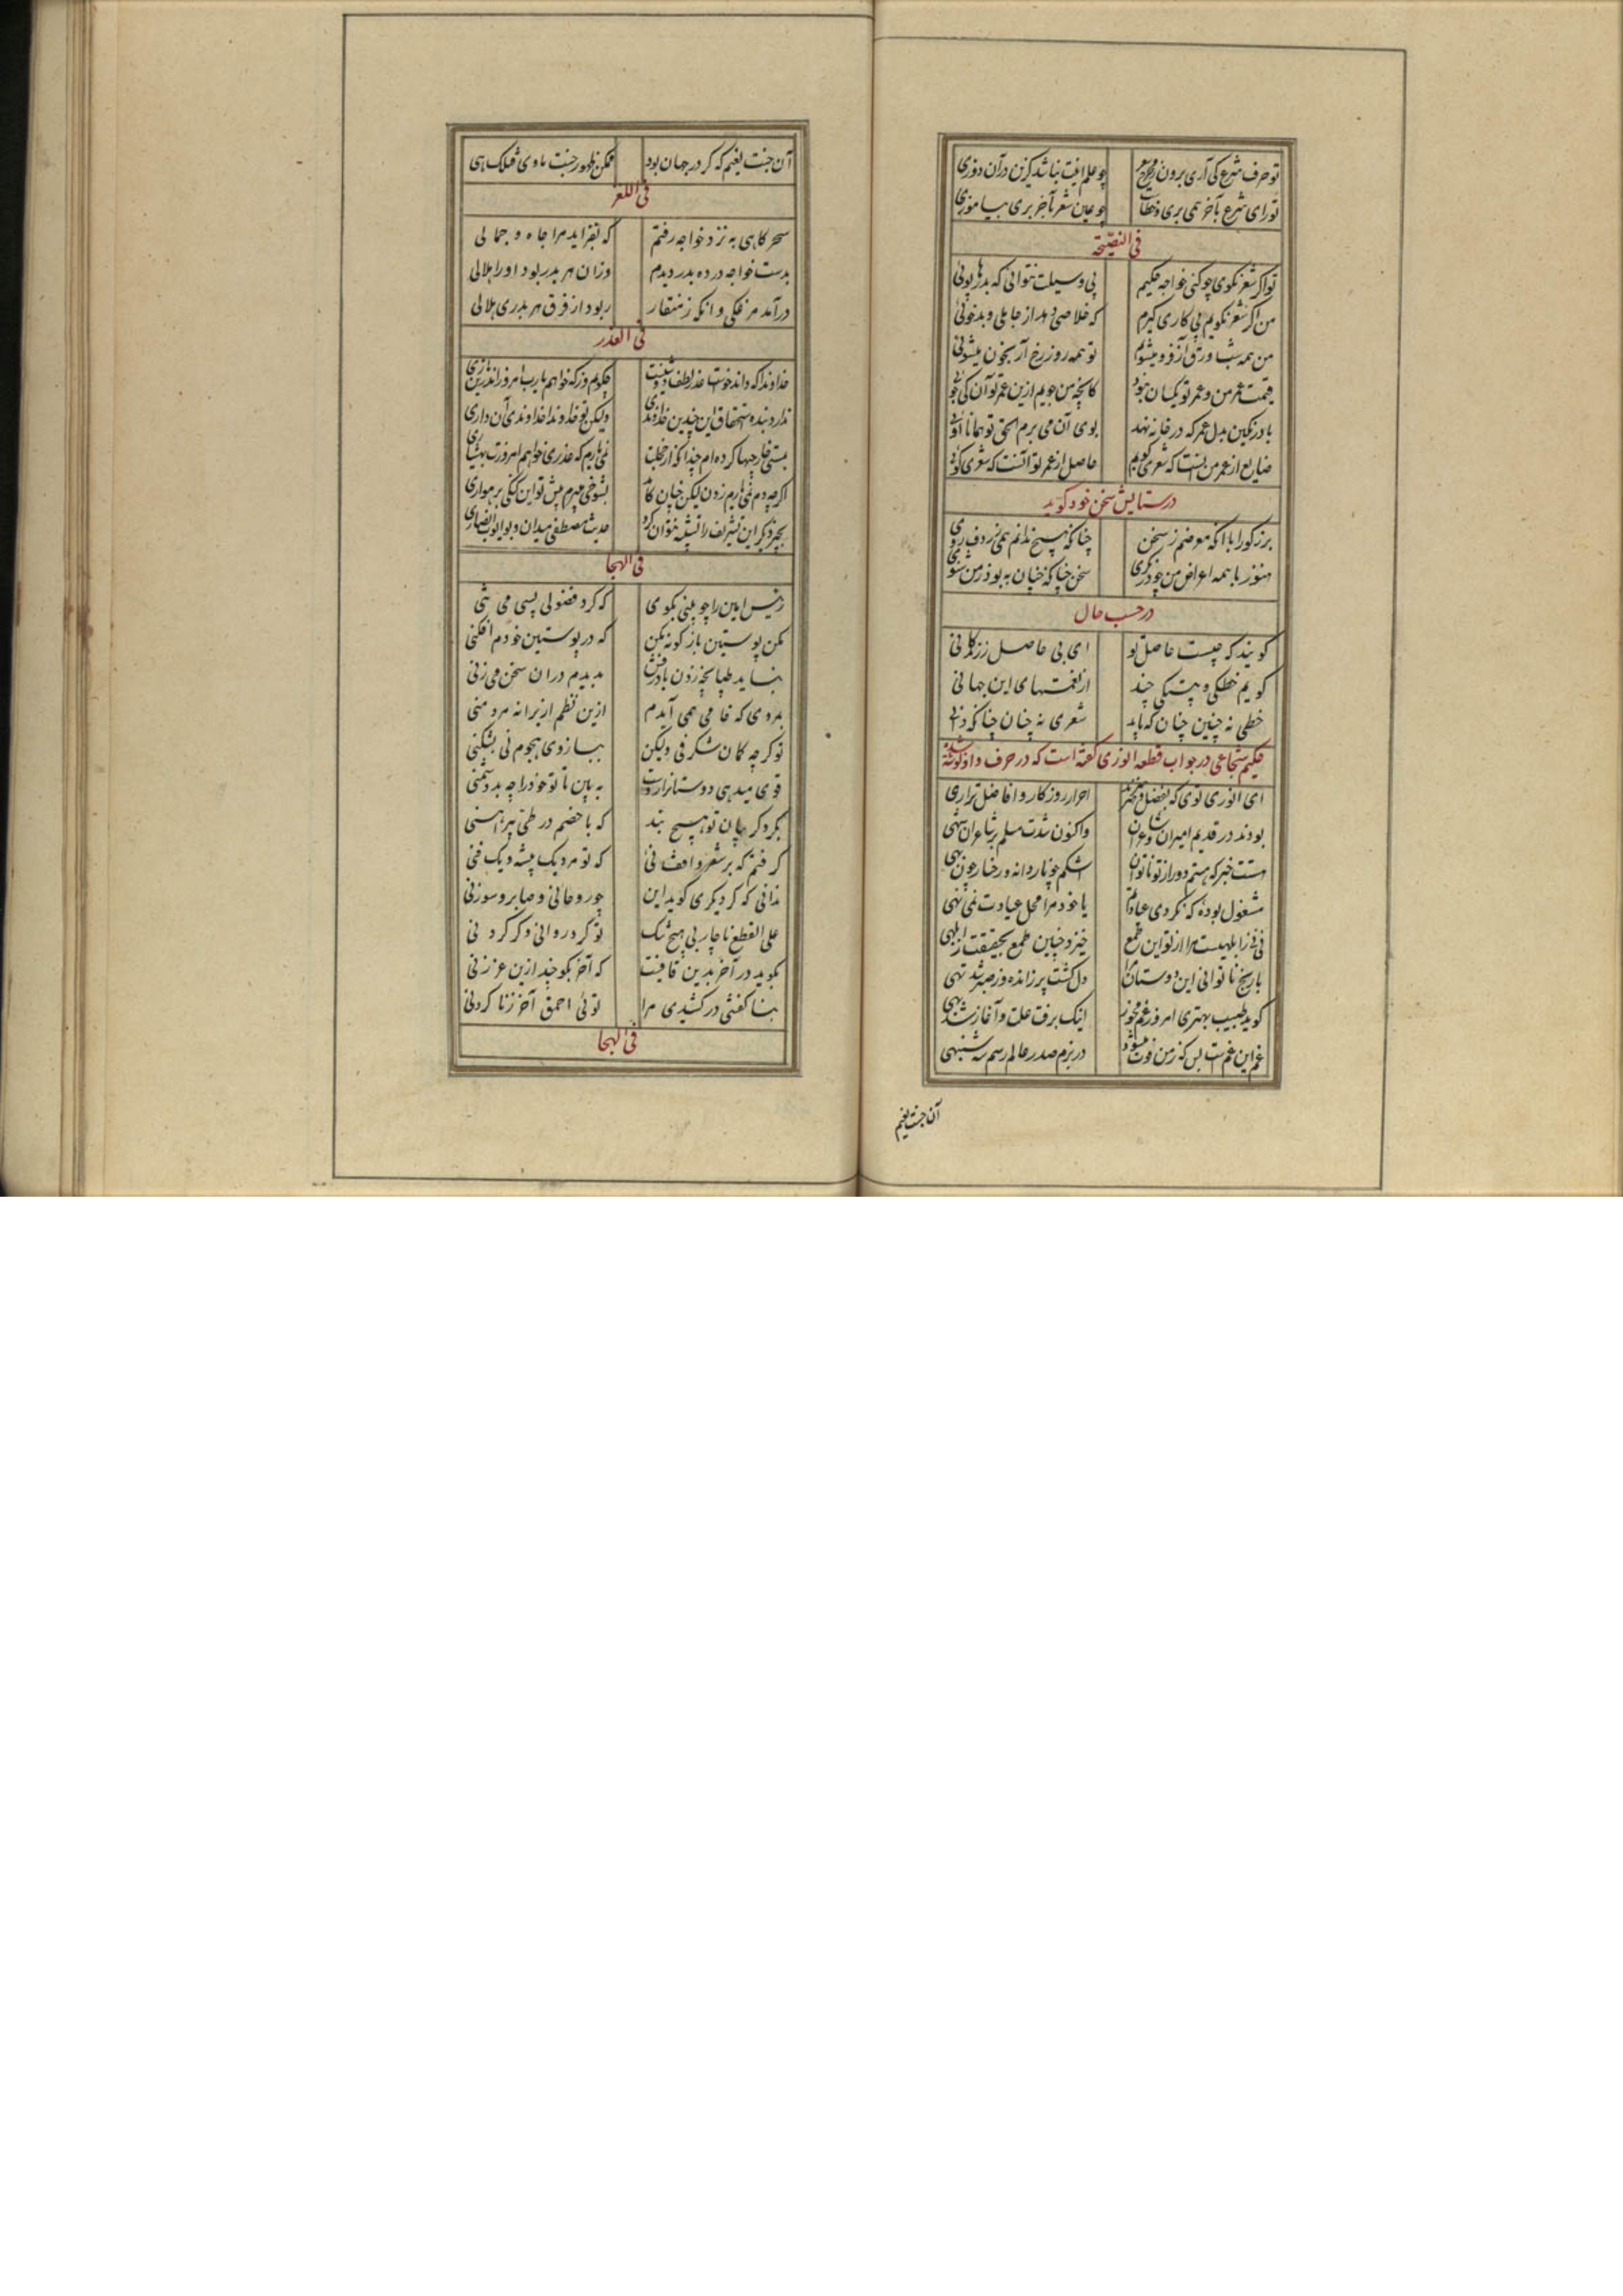 تو حرف شرع کی آری برون ز مخرج چو علم اینت نباشد گزین در آن دوزی
تو رای شرع بآخر همی بری و خطاست چو عین شعر بآخر بری بیاموزی
فی النصیحة
تو اگر شعر نگوی چو کنی خواجه حکیم بی وسیلت نتوانی که بدرها پوئی
من اگر شعر نگویم پی کاری گیرم که خلاصی دهد از جاهلی و بدخوئی
من همه شب ورق آز فرو میشویم تو همه روز رخ آز بخون میشوئی
قیمت عمر من و عمر تو یکسان نبود کانچه من جویم ازین عمر تو آن کی جوئی
باد رنگین بدل عمر که در خانه نهد بوی آن می برم الحق تو همانا اوئی
ضایع از عمر من اینست که شعری گویم حاصل از عمر تو آنست که شعری گوئی
در ستایش سخن خود گوید
بزرگورا با آنکه معرضم ز سخن چنانکه هیچ ندانم همی ز ردف روی
هنوز با همه اعراض من چو درنگری سخن چنانکه چنان به بود ز من شنوی
در حسب حال
گویند که چیست حاصل تو ای بی حاصل ز زندگانی
گویم خطکی و بیتکی چند از نعمتهای این جهانی
خطی نه چنین چنان که باید شعری نه چنان چنانکه دانی
حکیم شجاعی در جواب قطعه انوری گفته است که در حرف دال نوشته شده
ای انوری توی که بفضل و هنر احرار روزگار و افاضل تراری
بودند در قدیم امیران شاعران واکنون شدت مسلم بر شاعران شهی
هستت خبر که هستم دور از تو ناتوان اشکم چو ناردانه و رخسار چون بهی
مشغول بوده که نکردی عیادتم یا خود مرا محل عیادت نمی نهی
نی نی ز ابلهیست مرا از تو این طمع خیزد چنین طمع بحقیقت ز ابلهی
با رنج ناتوانی این دوستان مرا دل گشت پر ز انده و ز صبر شد تهی
گوید طبیب بهتری امروز غم مخور اینک برفت علت و آغاز شد بهی
غم این غمست بس که ز من فوت میشود در بزم صدر عالم رسم سه شنبهی
آن جنت نعیم
آن جنت نعیم که گر در جهان بود ممکن ظهور جنت ماوی فتلک هی
فی اللغز
سحرگاهی به نزد خواجه رفتم که بفزاید مرا جاه و جمالی
بدست خواجه در ده بدر دیدم وزان هر بدر بود او را هلالی
درآمد مرغکی وانگه ز منقار ربود از فرق هر بدری هلالی
فی العذر
خداوندا که داند خواست عذر لطف دوشینت چگویم وز که خواهم یارب امروز اندرین یاری
ندارد بنده استحقاق این چندین خداوندی ولیکن تو خداوندا خداوندی آن داری
بمستی خارجیها کرده ام چندانکه از خجلت نمی یارم که عذری خواهم امروزت بهشیاری
اگر چه دم نمی یارم زدن لیکن چنان کامد بشوخی میبرم پیش تو این لنگی برهواری
بجز ذکر این تشریف را تشبیه نتوان کرد حدیث مصطفی میدان و بوایوب انصاری
فی الهجا
رئیس امین را چو بینی بگوی که کرد فضولی بسی می تنی
مکن پوستین باژگونه مکن که در پوستین خودم افکنی
بباید طپانچه زدن بادرفش بدیدم دران سخن می زنی
بروی که خامی همی آیدم ازین نظم از بر انه مرد منی
تو گرچه کان شگرفی ولیکن ببازوی هجوم نی بشکنی
قوی میدهی دوستانرا به بین تا تو خود را چه بد دشمنی
بگرد گریبان تو هیچ بند که با خصم در طی پیراهنی
گرفتم که بر شعر واقف نی که تو مرد یک پیشه و یک فنی
ندانی که گر دیگری گوید این چو روحانی و صابر و سوزنی
علی القطع ناچار بی هیچ شک تو گر دروانی و گر کردنی
بگوید در آخر بدین قافیت که آخر بگو چند ازین غر زنی
بنا گفتنی در کشیدی مرا توئی احمق آخر زنا کردنی
فی الهجا